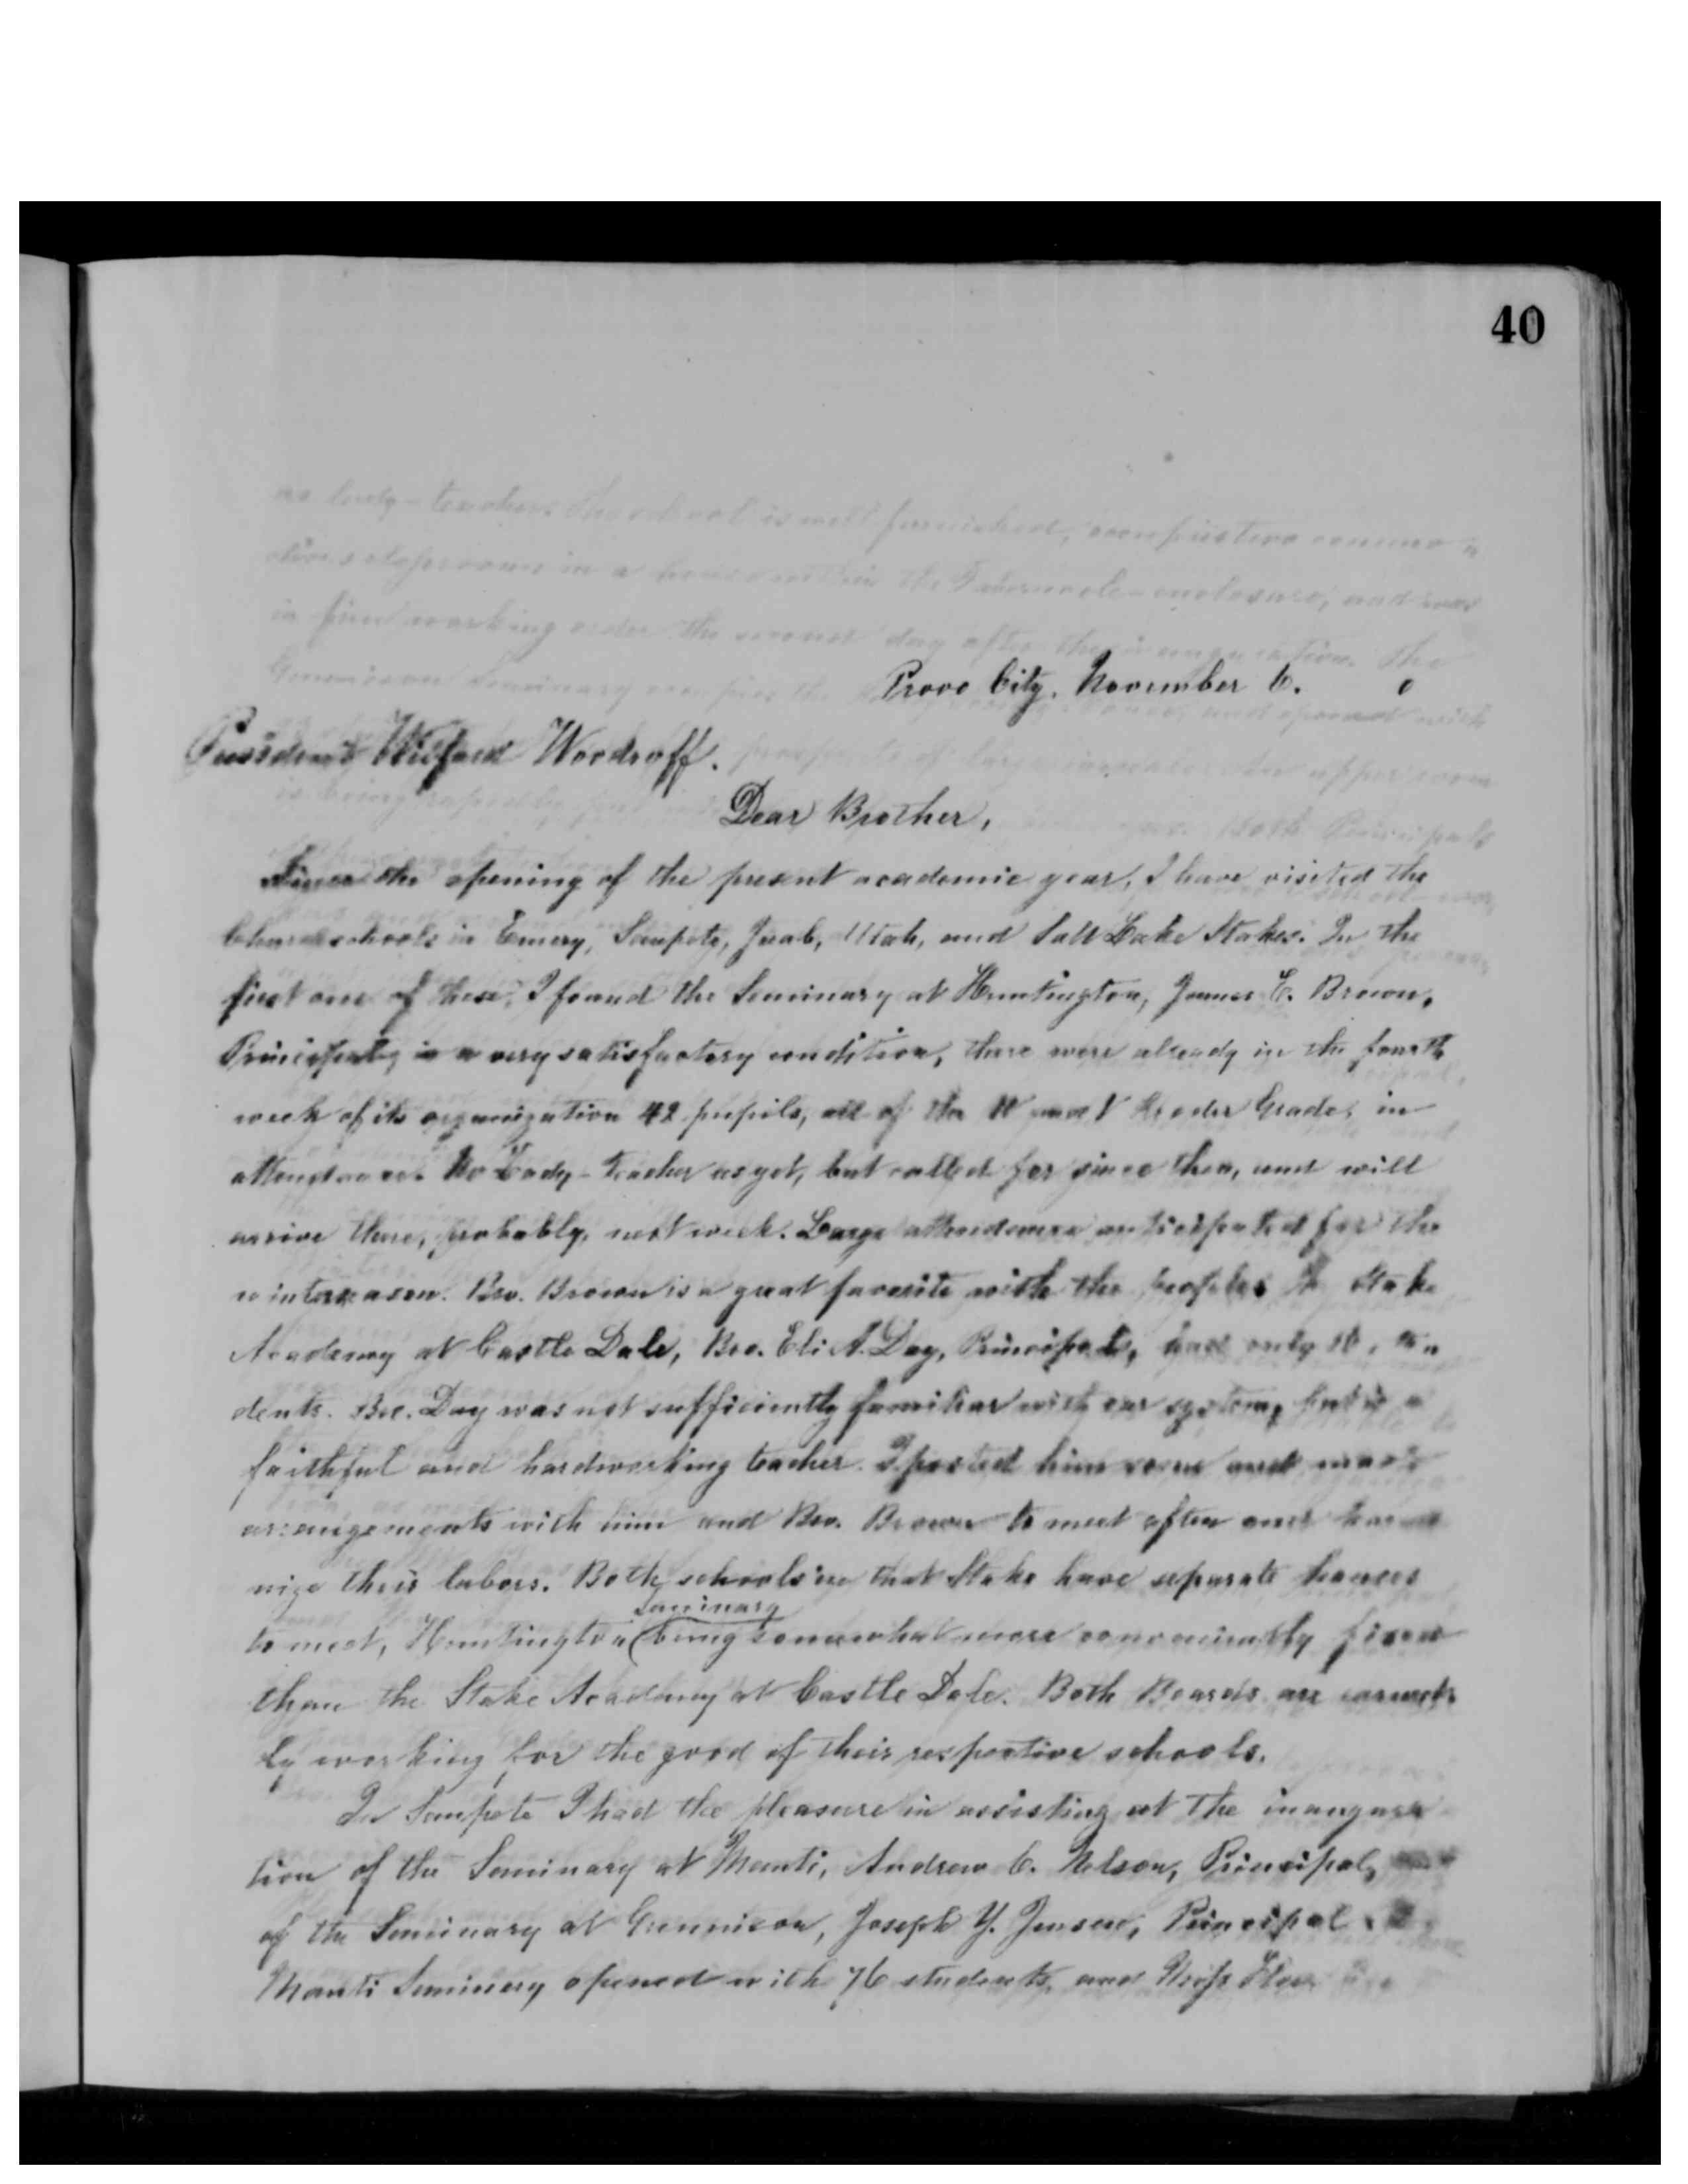 40
Provo City, November 6.
President Wilford Woodruff.
Dear Brother,
Since the opening of the present academic year, I have visited the
Church schools in Emery, Sanpete, Juab, Utah, and Salt Lake Stakes. In the
first one of these, I found the Seminary at Huntington, James E. Brown,
Principal, in a very satisfactory condition, there were already in the fourth
week of its organization 42 pupils, all of the and V Reader Grade, in
attendance. No Lady-teacher as yet, but called for since then, and will
arrive there, probably, next week. Large attendance anticipated for the
winterseason. Bro. Brown is a great favorite with the people. Stake
Academy at Castle Dale, Bro. Eli A. Day, Principal, had only
dents. Bro. Day was not sufficiently familiar with our system, but is a
faithful and hardworking teacher. I posted him some and made
arrangements with him and Bro. Brown to meet often and harmo
nize their labors. Both schools in that Stake have separate houses
to meet, Huntington Seminary being somewhat more conveniently fixed
than the Stake Academy at Castle Dale. Both Boards are earnest
ly working for the good of their respective schools.
In Sanpete I had the pleasure in assisting at the inaugura
tion of the Seminary at Manti, Andrew C. Nelson, Principal,
of the Seminary at Gunnison, Joseph Y. Jensen, Principal.
Manti Seminary opened with 76 students, and